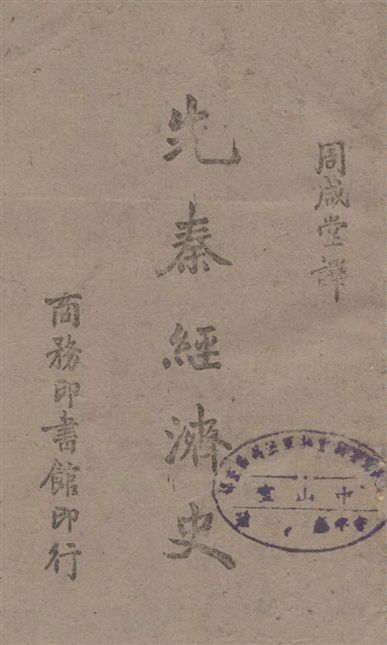 周咸堂譯
先秦經濟史
商務印書館印行
中山室